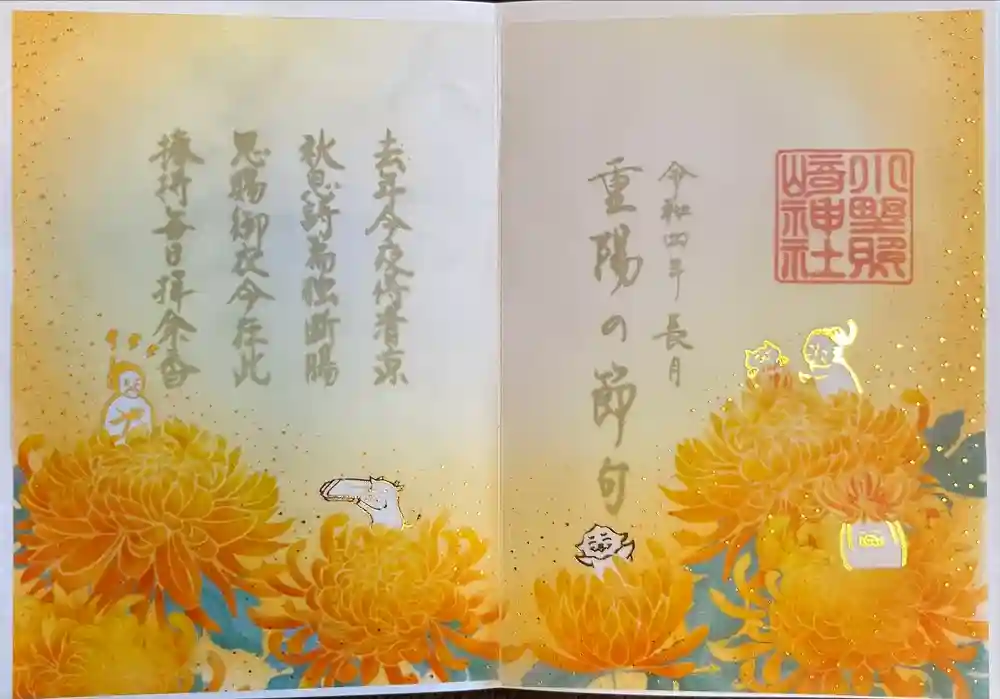 小野照
崎神社
令和四年 長月
重陽の節句
去年今夜侍清涼
秋思詩篇独断腸
恩賜御衣今在此
捧持毎日拝余香